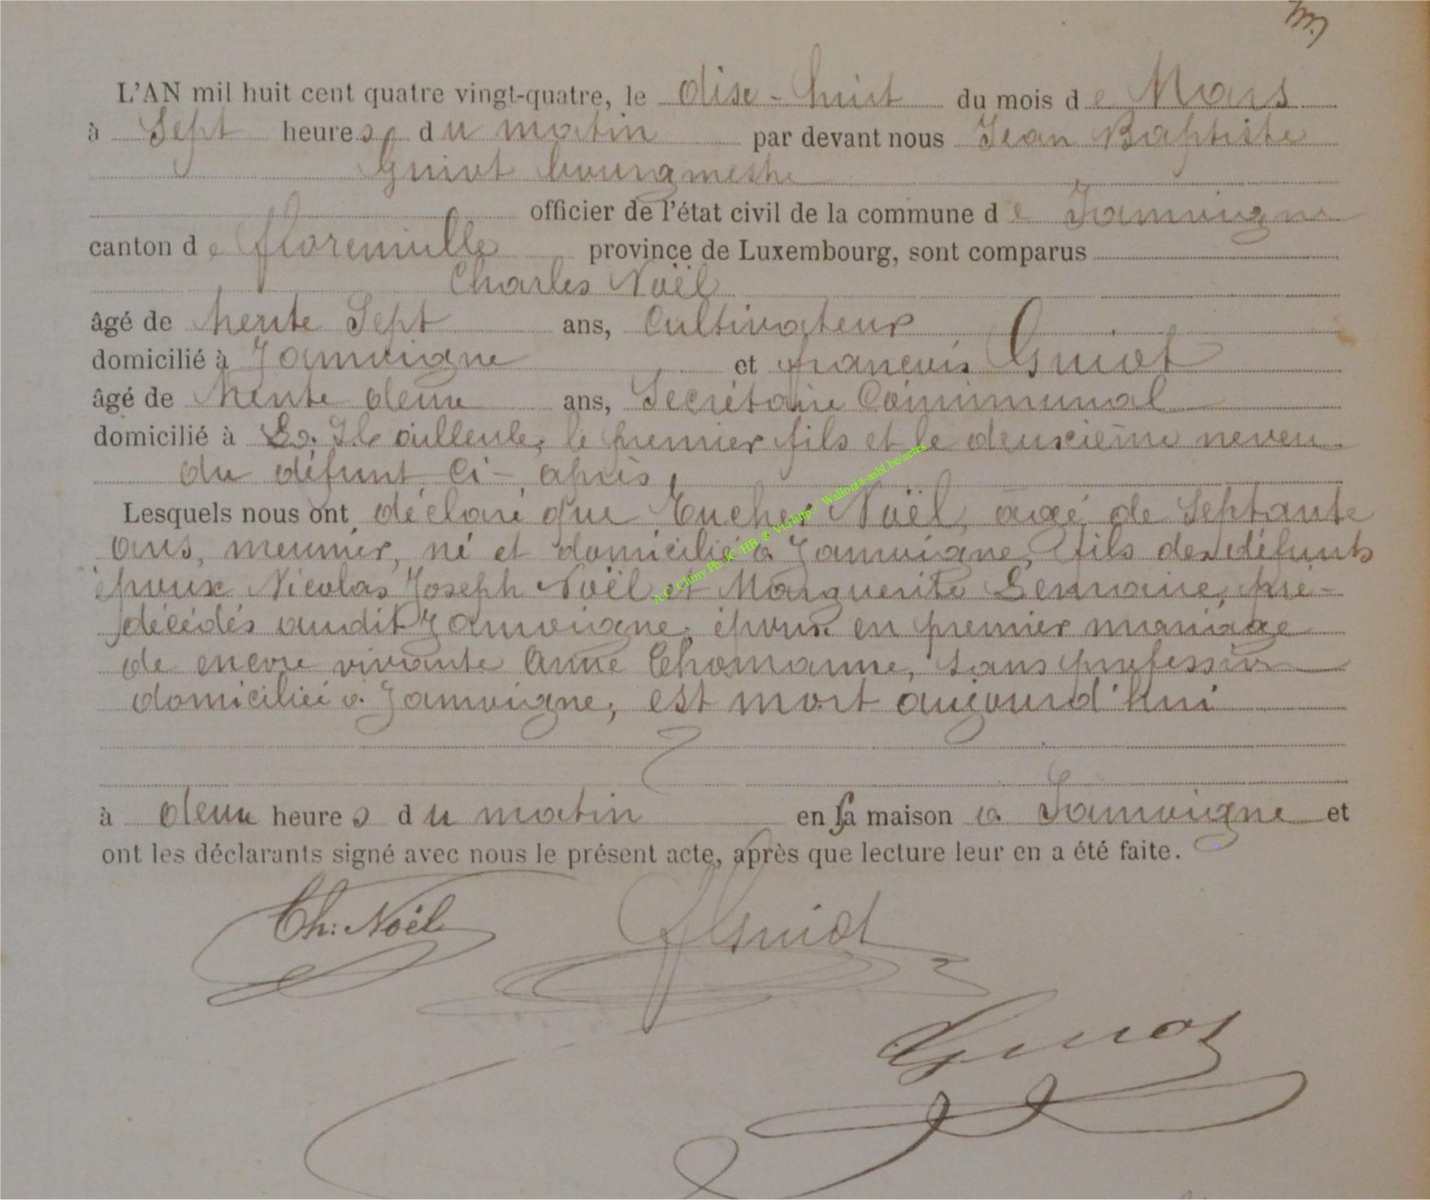 L'AN mil huit cent quatre vingt-quatre, le dise-huit du mois de Mars
à Sept heures du matin par devant nous Jean Baptiste
Guiot bourgmestre
officier de l'état civil de la commune de Jamoigne
canton de florenville province de Luxembourg, sont comparus
Charles Noël
âgé de trente Sept ans, Cultivateur
domicilié à Jamoigne et françois Guiot
âgé de trente deux ans, Secrétaire Communal
domicilié à le premier fils et le deuxième neveu
du défunt ci-après,
Lesquels nous ont déclaré que Eucher Noël, âgé de Septante
ans, meunier, né et domicilié à Jamoigne, fils des défunts
époux Nicolas Joseph Noël et Marguerite Lemaire, pré-
décédés audit Jamoigne, époux en premier mariage
de encore vivante Anne Thomanne, sans profession
domiciliée à Jamoigne, est mort aujourd'hui
à deux heures du matin en sa maison à Jamoigne et
ont les déclarants signé avec nous le présent acte, après que lecture leur en a été faite.
Ch: Noël Guiot
Guiot